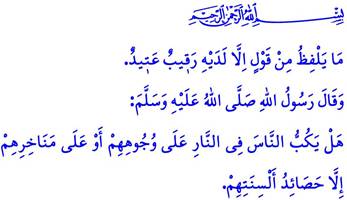 بِسْمِ اللهِ الرَّحْمٰنِ الرَّحِيمِ
مَا يَلْفِظُ مِنْ قَوْلٍ اِلَّا لَدَيْهِ رَقٖيبٌ عَتٖيدٌ.
وَقَالَ رَسُولُ اللهِ صَلَّى اللهُ عَلَيْهِ وَسَلَّمَ:
هَلْ يَكُبُّ النَّاسَ فِى النَّارِ عَلَى وُجُوهِهِمْ أَوْ عَلَى مَنَاخِرِهِمْ
إِلَّا حَصَائِدُ أَلْسِنَتِهِمْ.